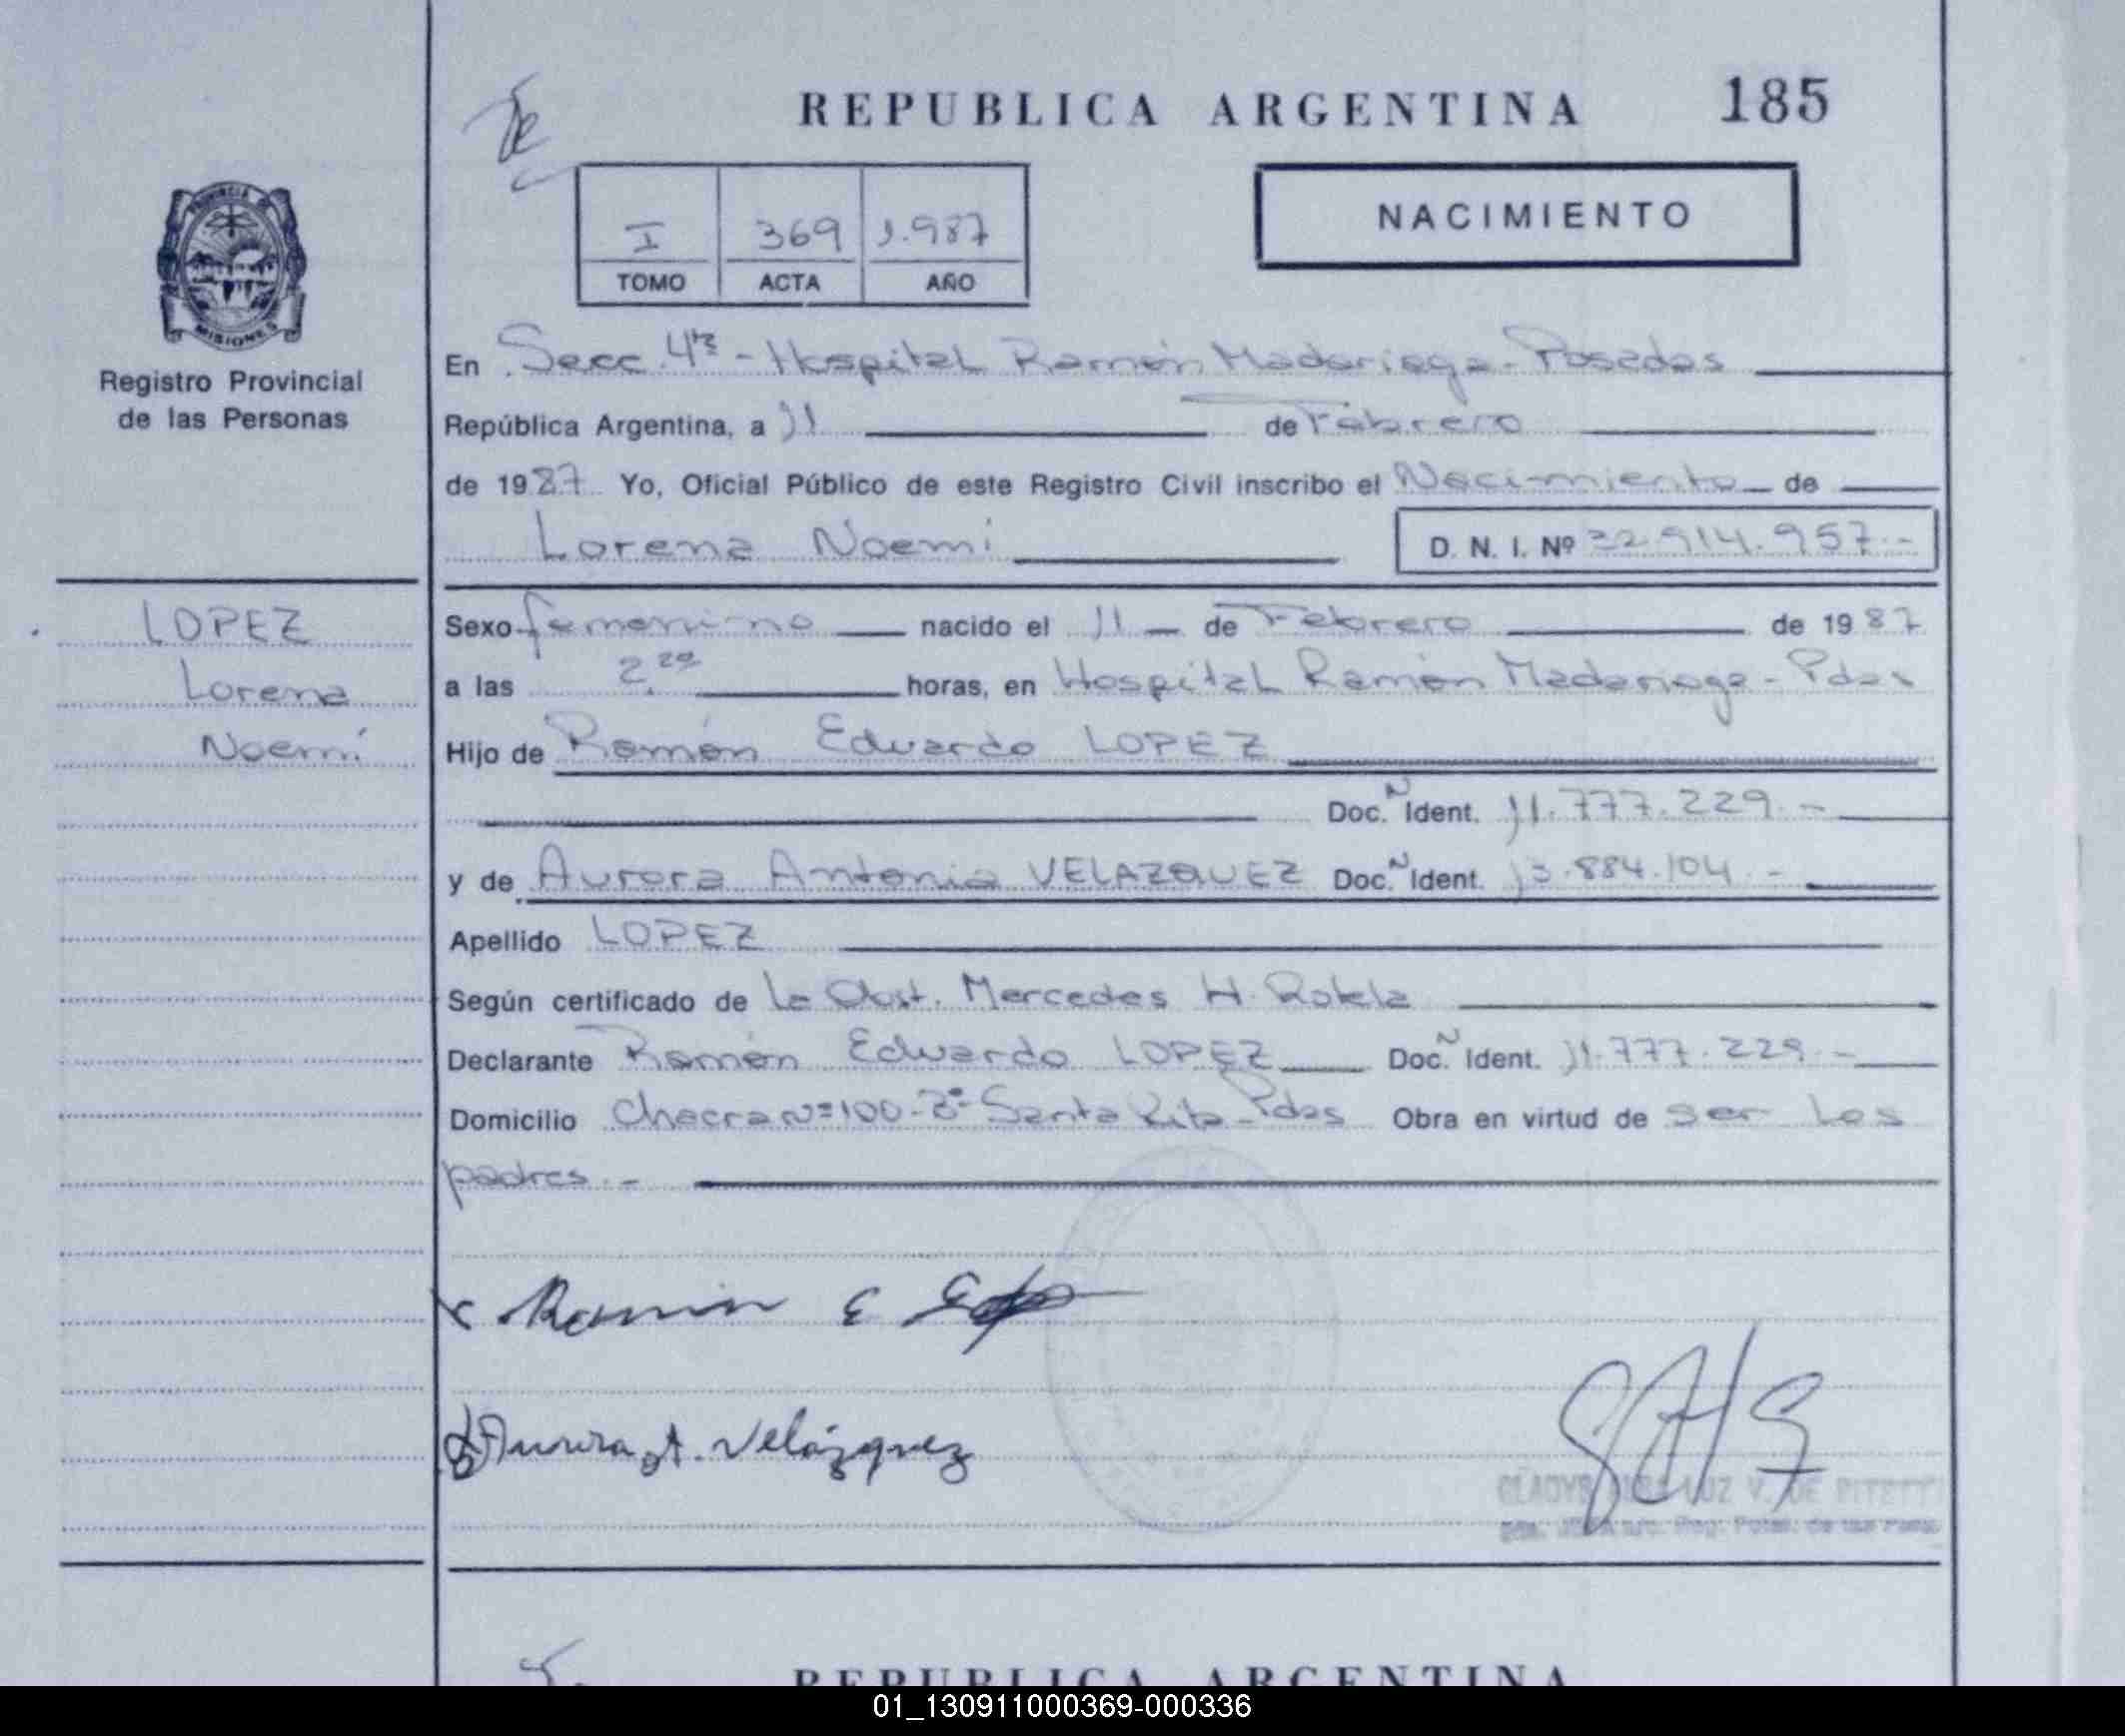 REPUBLICA ARGENTINA 185
I 369 1.987
TOMO ACTA AÑO
NACIMIENTO
PROVINCIA DE
MISIONES
Registro Provincial
de las Personas
En Secc. 4ta - Hospital Ramón Madariaga - Posadas
República Argentina, a 11 de Febrero
de 1987 Yo, Oficial Público de este Registro Civil inscribo el Nacimiento de
Lorena Noemí D. N. I. Nº 32.914.957.-
LOPEZ
Lorena
Noemí
Sexo femenino nacido el 11 de Febrero de 1987
a las 2.20 horas, en Hospital Ramón Madariaga - Pdas
Hijo de Ramón Eduardo LOPEZ
Doc. N Ident. 11.777.229.-
y de Aurora Antonia VELAZQUEZ Doc. N Ident. 13.884.104.-
Apellido LOPEZ
Según certificado de la Obst. Mercedes H. Rotela
Declarante Ramón Eduardo LOPEZ Doc. N Ident. 11.777.229.-
Domicilio Chacra Nº 100 - Bº Santa Rita - Pdas Obra en virtud de ser los
padres.-
Ramón E
Aurora A. Velázquez
GLADYS LUZ V. DE PITETTI
REPUBLICA ARGENTINA
01_130911000369-000336